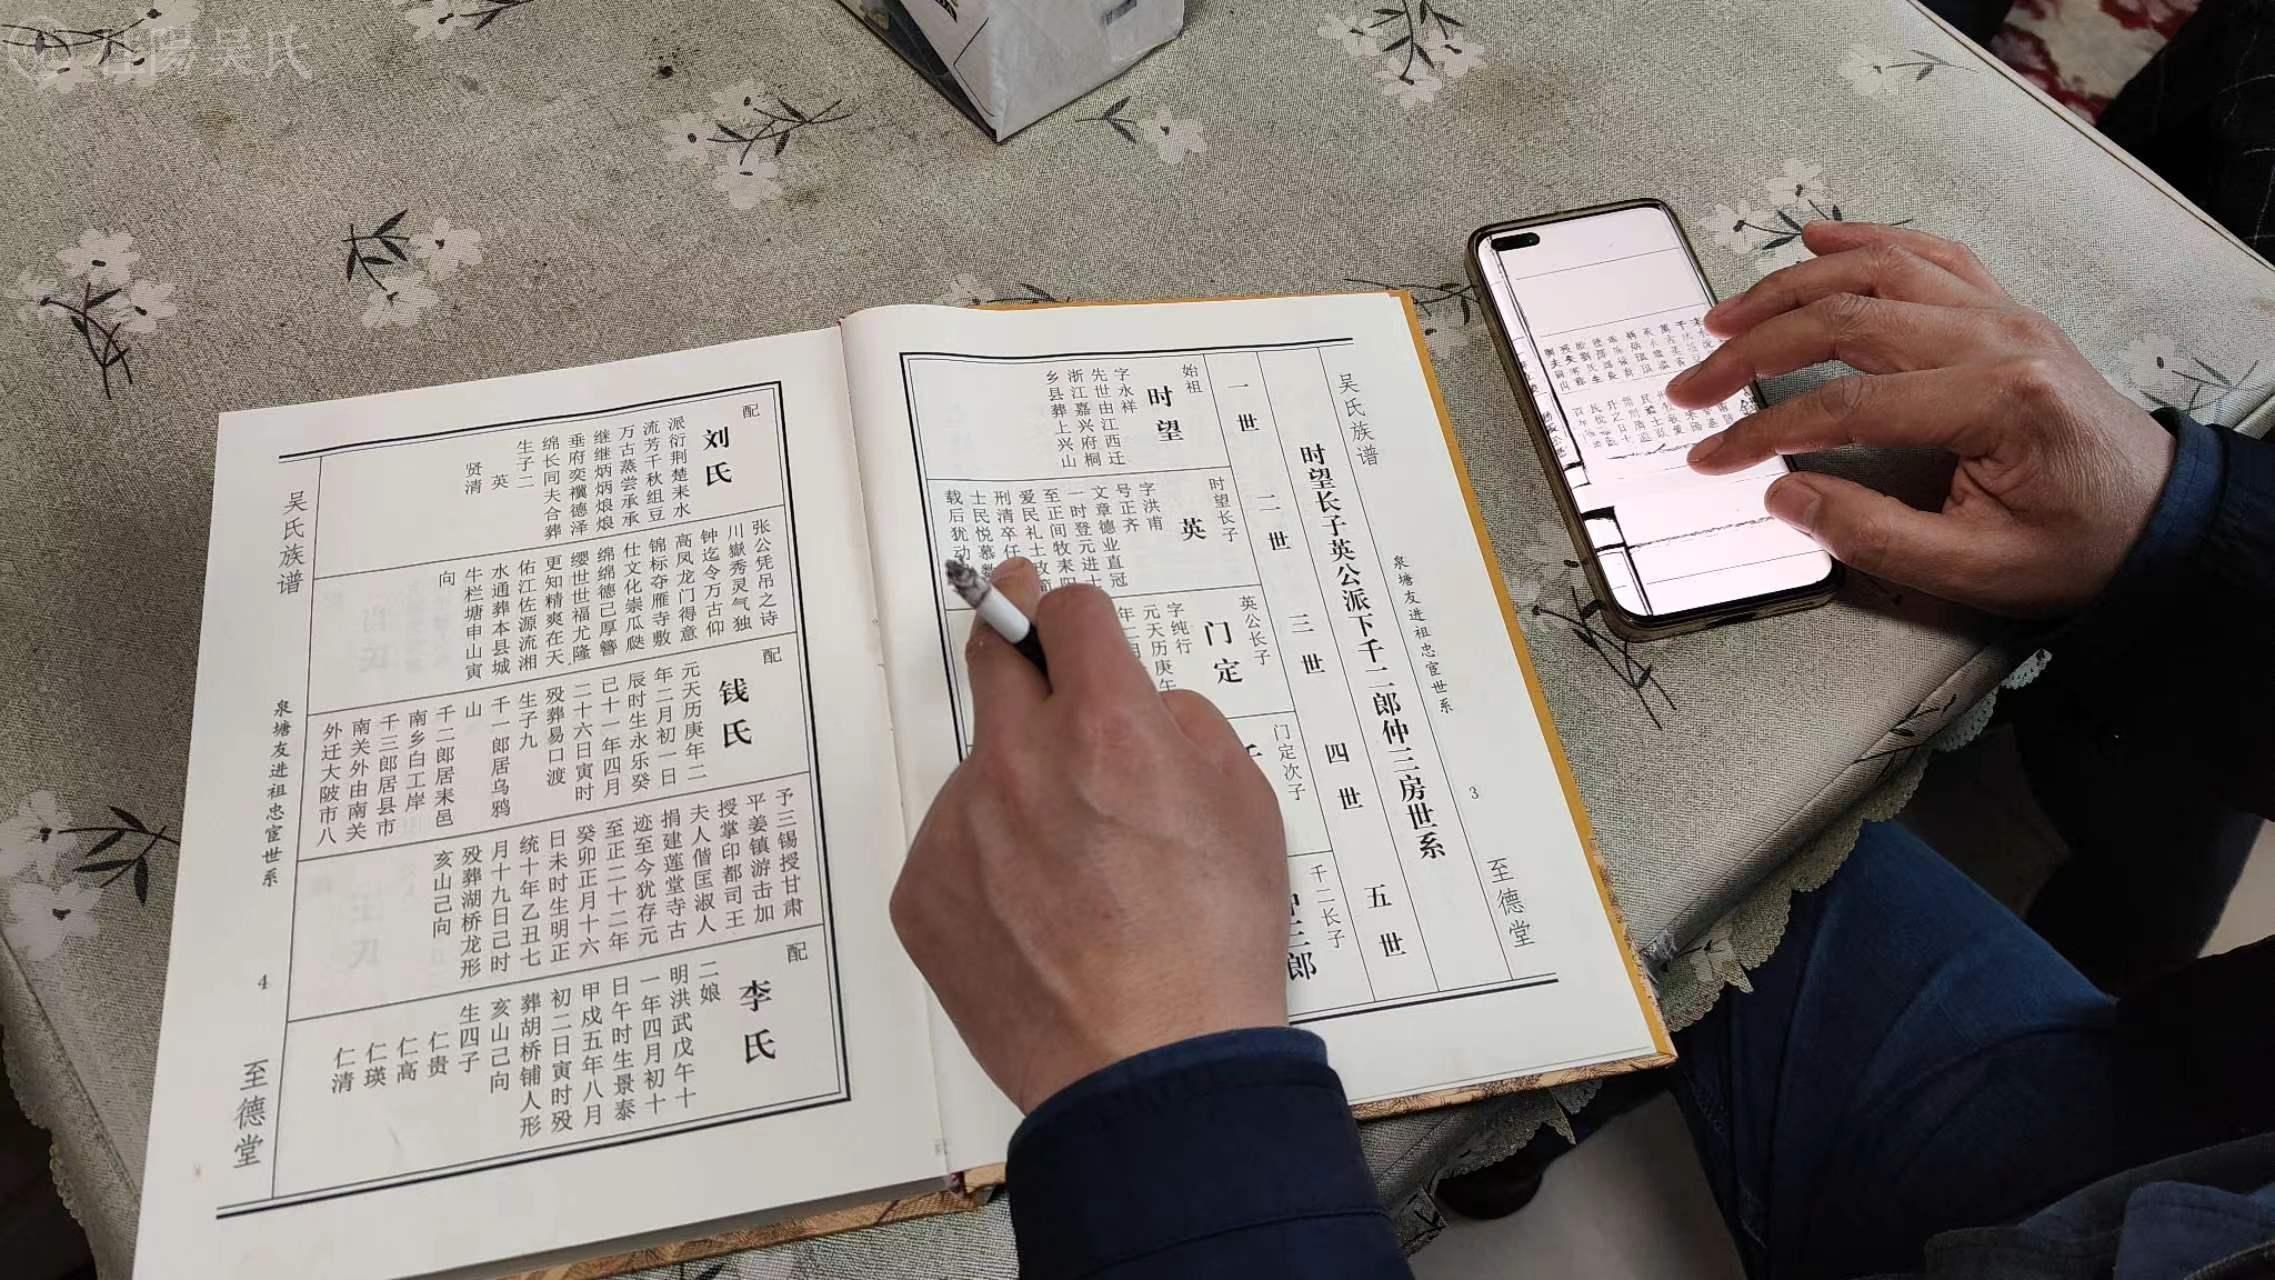 吴氏
吴氏族谱
泉塘友进祖忠宦世系
3
至德堂
时望长子英公派下千二郎仲三房世系
一世
二世
三世
四世
五世
始祖
时望
字永祥
先世由江西迁
浙江嘉兴府桐
乡县葬上兴山
时望长子
英
字洪甫
号正齐
文章德业直冠
一时登元进士
至正间牧耒阳
爱民礼士政简
刑清卒任
士民悦慕数
载后犹动
英公长子
门定
字纯行
元天历庚午
门定次子
千二长子
仲三郎
张公凭吊之诗
川嶽秀灵气独
钟迄令万古仰
高凤龙门得意
锦标夺雁寺敷
仕文化崇瓜瓞
绵绵德己厚簪
缨世世福尤隆
更知精爽在天
佑江佐源流湘
水通葬本县城
牛栏塘申山寅
向
予三锡授甘肃
平姜镇游击加
授掌印都司王
夫人偕匡淑人
捐建莲堂寺古
迹至今犹存元
至正二十二年
癸卯正月十六
日未时生明正
统十年乙丑七
月十九日己时
殁葬湖桥龙形
亥山己向
配
刘氏
派衍荆楚耒水
流芳千秋组豆
万古蒸尝承承
继继炳炳烺烺
垂府奕禩德泽
绵长同夫合葬
生子二
英
贤清
配
钱氏
元天历庚年二
年二月初一日
辰时生永乐癸
己十一年四月
二十六日寅时
殁葬易口渡
生子九
千一郎居乌鸦
山
千二郎居耒邑
南乡白工岸
千三郎居县市
南关外由南关
外迁大陂市八
配
李氏
二娘
明洪武戊午十
一年四月初十
日午时生景泰
甲戍五年八月
初二日寅时殁
葬胡桥铺人形
亥山己向
生四子
仁贵
仁高
仁瑛
仁清
吴氏族谱
泉塘友进祖忠宦世系
4
至德堂